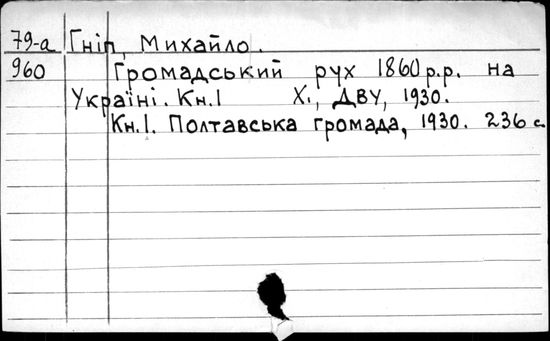 79-а Гніп, Михайло.
960 Громадський рух 1860 р.р. на
Україні. Кн.1 Х., ДВУ, 1930.
Кн.1. Полтавська громада, 1930. 236 с